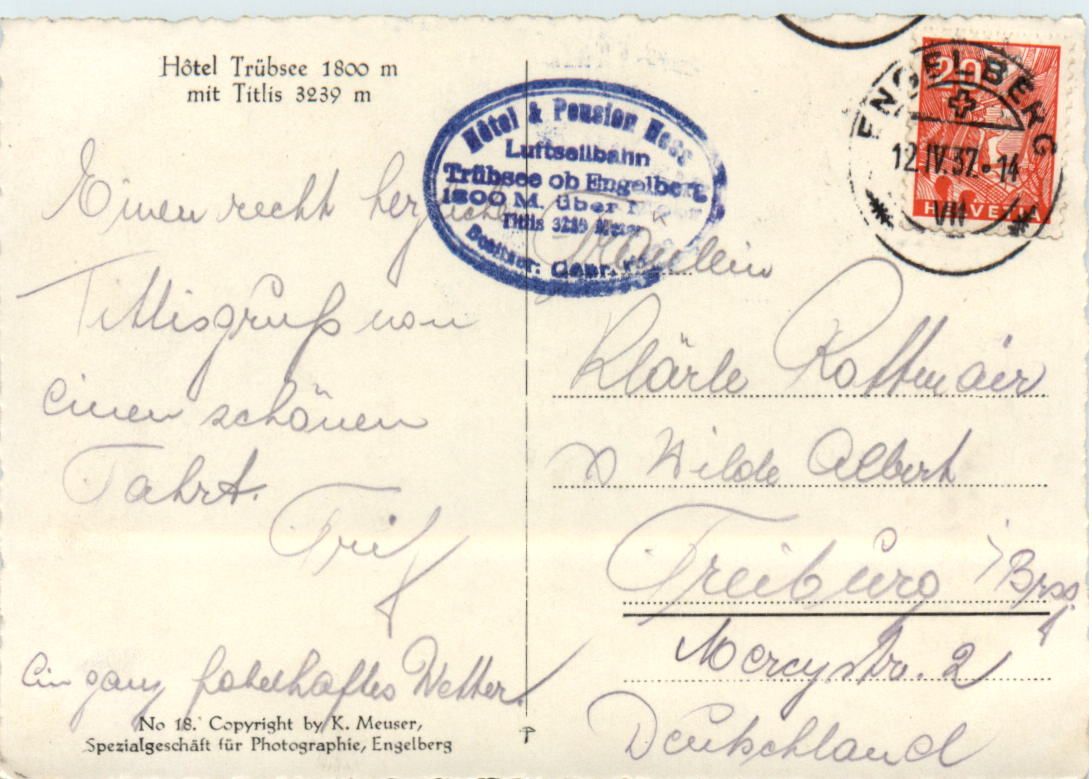 Hôtel Trübsee 1800 m
mit Titlis 3239 m
Einen recht herzlichen
Titlisgruß von
einen schönen
Fahrt.
Ein ganz fabelhaftes Wetter.
No 18. Copyright by K. Meuser,
Spezialgeschäft für Photographie, Engelberg
Hôtel & Pension Hess
Luftseilbahn
Trübsee ob Engelberg
1800 M. über Meer
Titlis 3239 Meter
Besitzer: Gebr.
20
HELVETIA
ENGELBERG
12.IV.37.-14
VII
Fräulein
Klärle Rottmair
Wilde Albert
Freiburg i/Brsg
Mercystr. 2
Deutschland